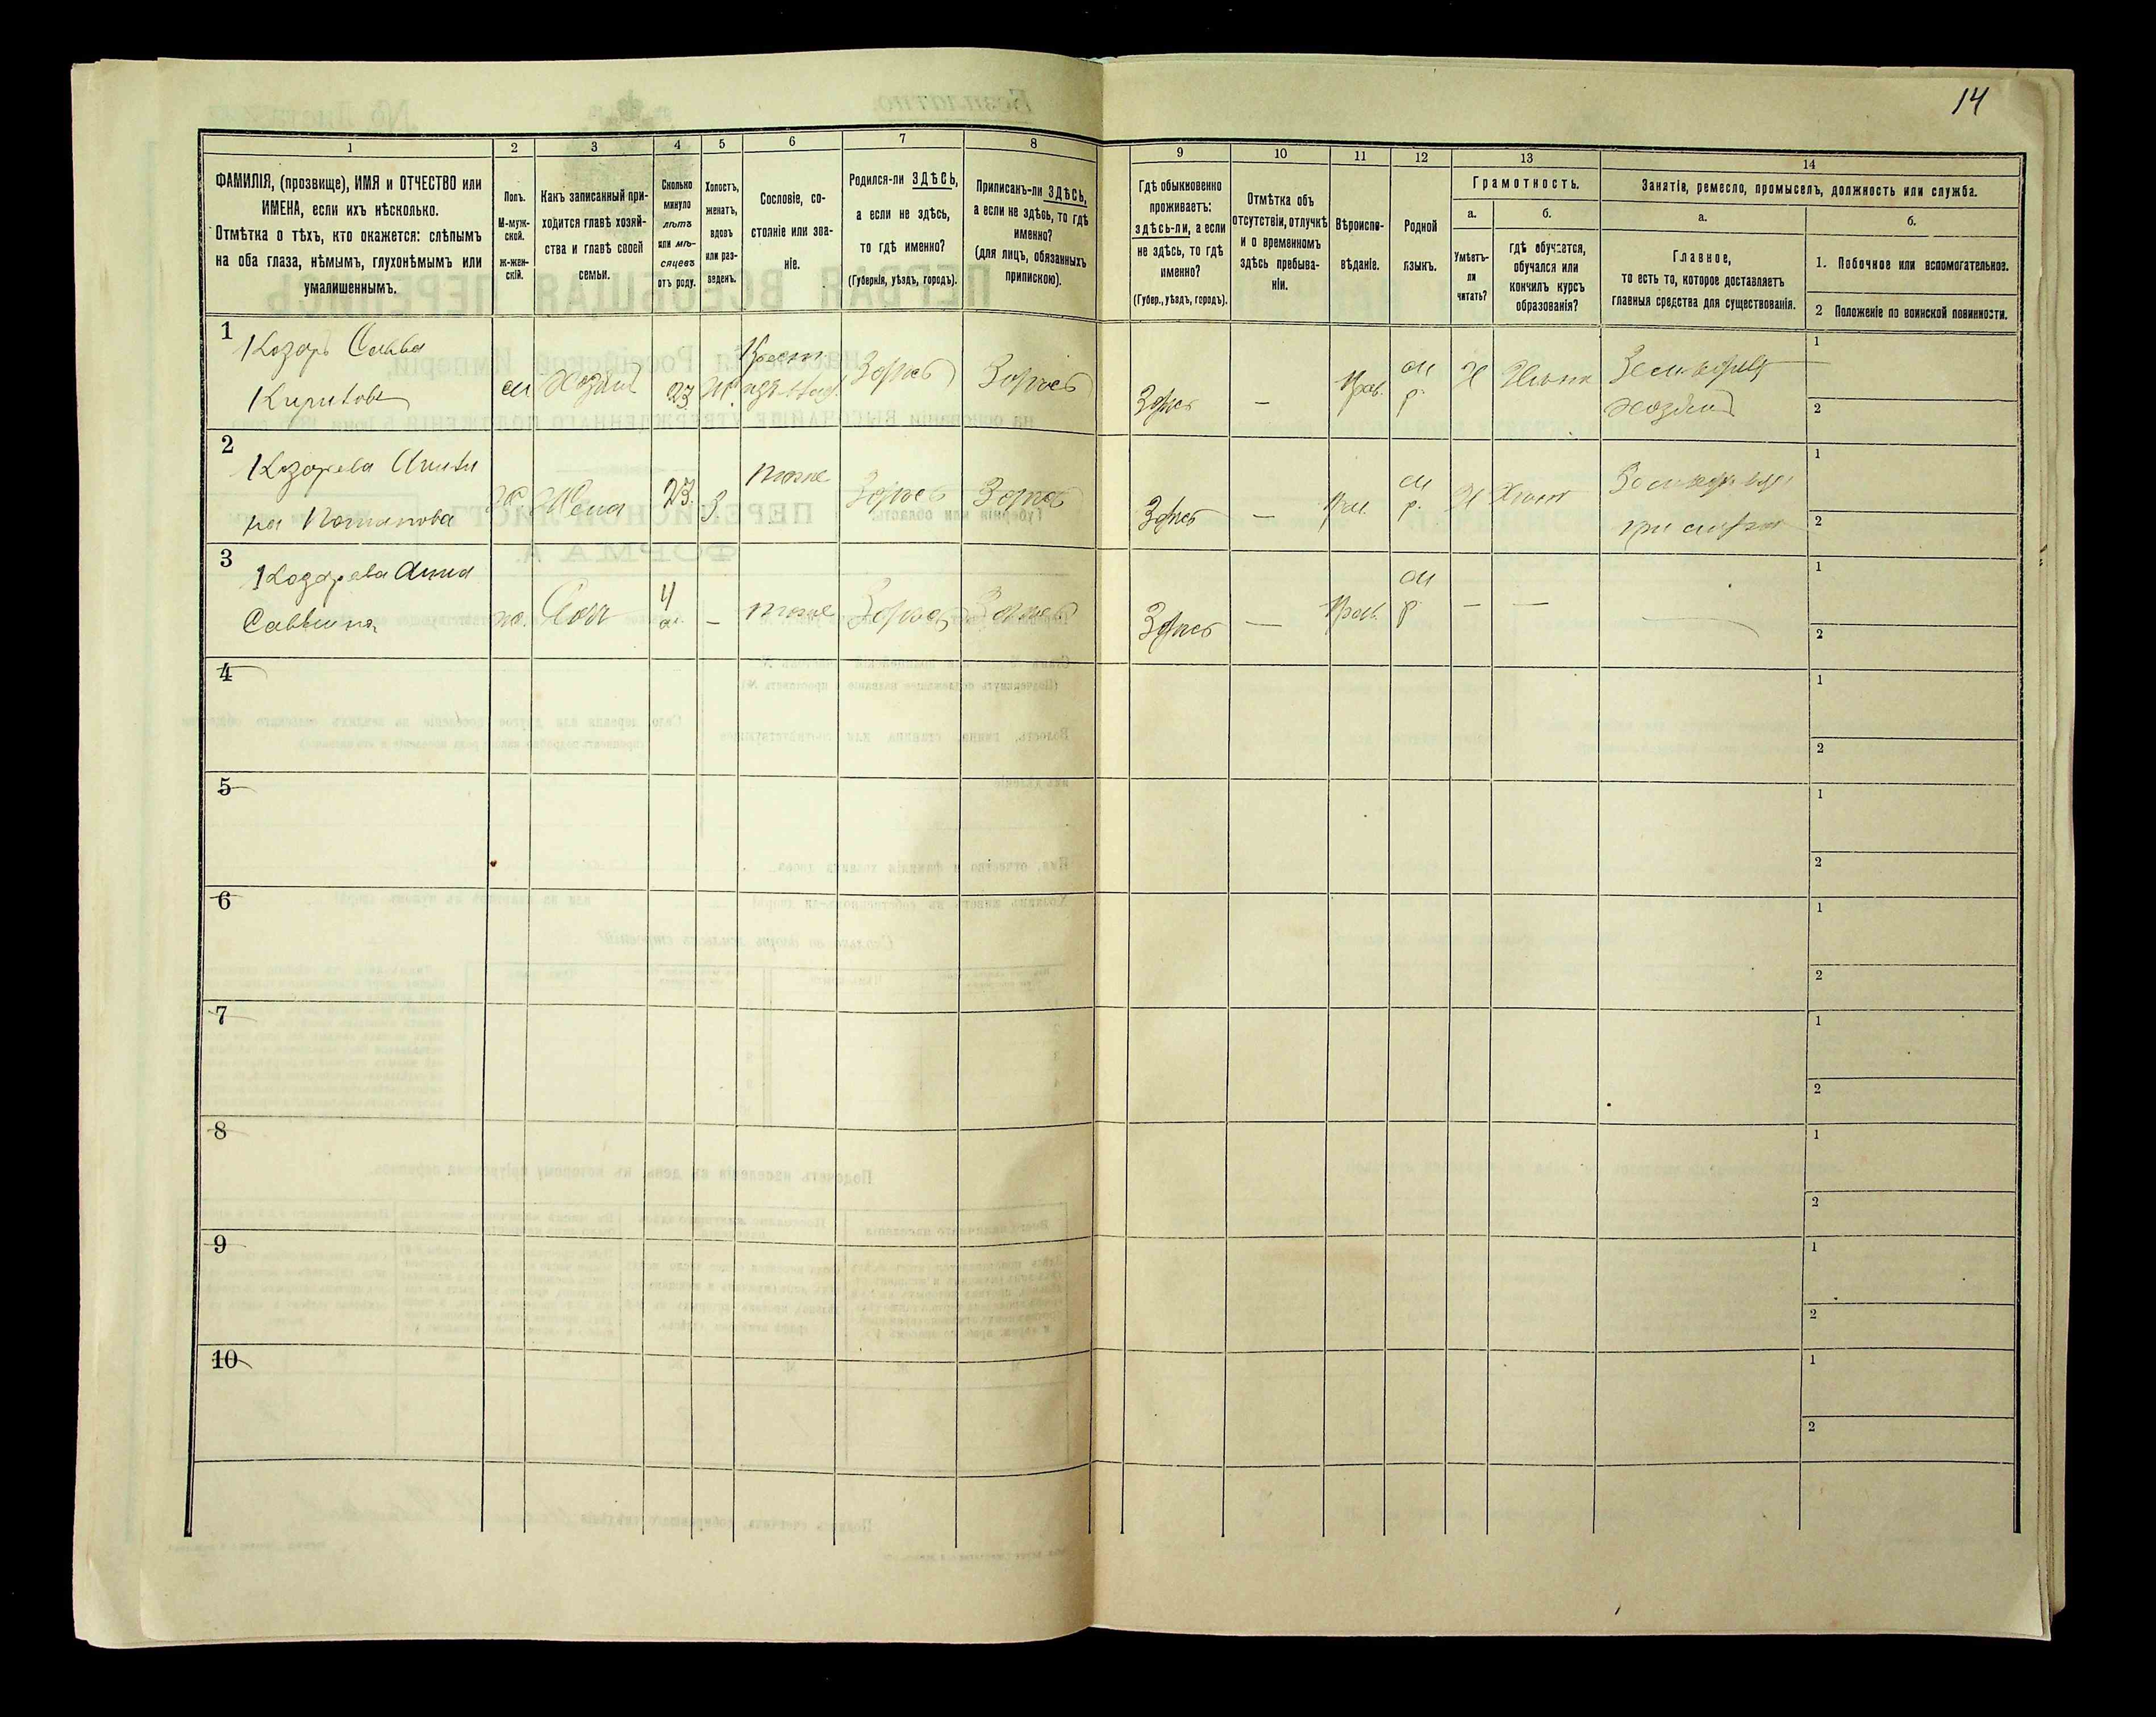 14
1
2
3
4
5
6
7
8
9
10
11
12
13
14
ФАМИЛІЯ, (прозвище), ИМЯ и ОТЧЕСТВО или
ИМЕНА, если ихъ нѣсколько.
Отмѣтка о тѣхъ, кто окажется: слѣпымъ
на оба глаза, нѣмымъ, глухонѣмымъ или
умалишеннымъ.
Полъ.
М-муж-
ской.
Ж-жен-
скій.
Какъ записанный при-
ходится главѣ хозяй-
ства и главѣ своей
семьи.
Сколько
минуло
лѣтъ
или мѣ-
сяцевъ
отъ роду.
Холостъ,
женатъ,
вдовъ
или раз-
веденъ.
Сословіе, со-
стояніе или зва-
ніе.
Родился-ли ЗДѢСЬ,
а если не здѣсь,
то гдѣ именно?
(Губернія, уѣздъ, городъ).
Приписанъ-ли ЗДѢСЬ,
а если не здѣсь, то гдѣ
именно?
(для лицъ, обязанныхъ
припискою).
Гдѣ обыкновенно
проживаетъ:
здѣсь-ли, а если
не здѣсь, то гдѣ
именно?
(Губер., уѣздъ, городъ).
Отмѣтка объ
отсутствіи, отлучкѣ
и о временномъ
здѣсь пребыва-
ніи.
Вѣроиспо-
вѣданіе.
Родной
языкъ.
Грамотность.
а.
Умѣетъ-
ли
читать?
б.
гдѣ обучается,
обучался или
кончилъ курсъ
образованія?
Занятіе, ремесло, промыселъ, должность или служба.
а.
Главное,
то есть то, которое доставляетъ
главныя средства для существованія.
б.
1. Побочное или вспомогательное.
2 Положеніе по воинской повинности.
1
Козарь Савва
Кирилловъ
м
Хозяинъ
23
ж.
Крест.
Здѣсь
Здѣсь
Здѣсь
—
Прав.
м
р.
Н
Хозяинъ
1
2
2
Козарева
Потапова
ж
Жена
23.
З
тоже
Здѣсь
Здѣсь
Здѣсь
—
м
р.
Н
при мужѣ
1
2
3
Козарева Анна
Саввина
ж.
Дочь
4
м.
—
тоже
Здѣсь
Здѣсь
Здѣсь
—
Прав.
м
р
—
—
1
2
4
1
2
5
1
2
6
1
2
7
1
2
8
1
2
9
1
2
10
1
2